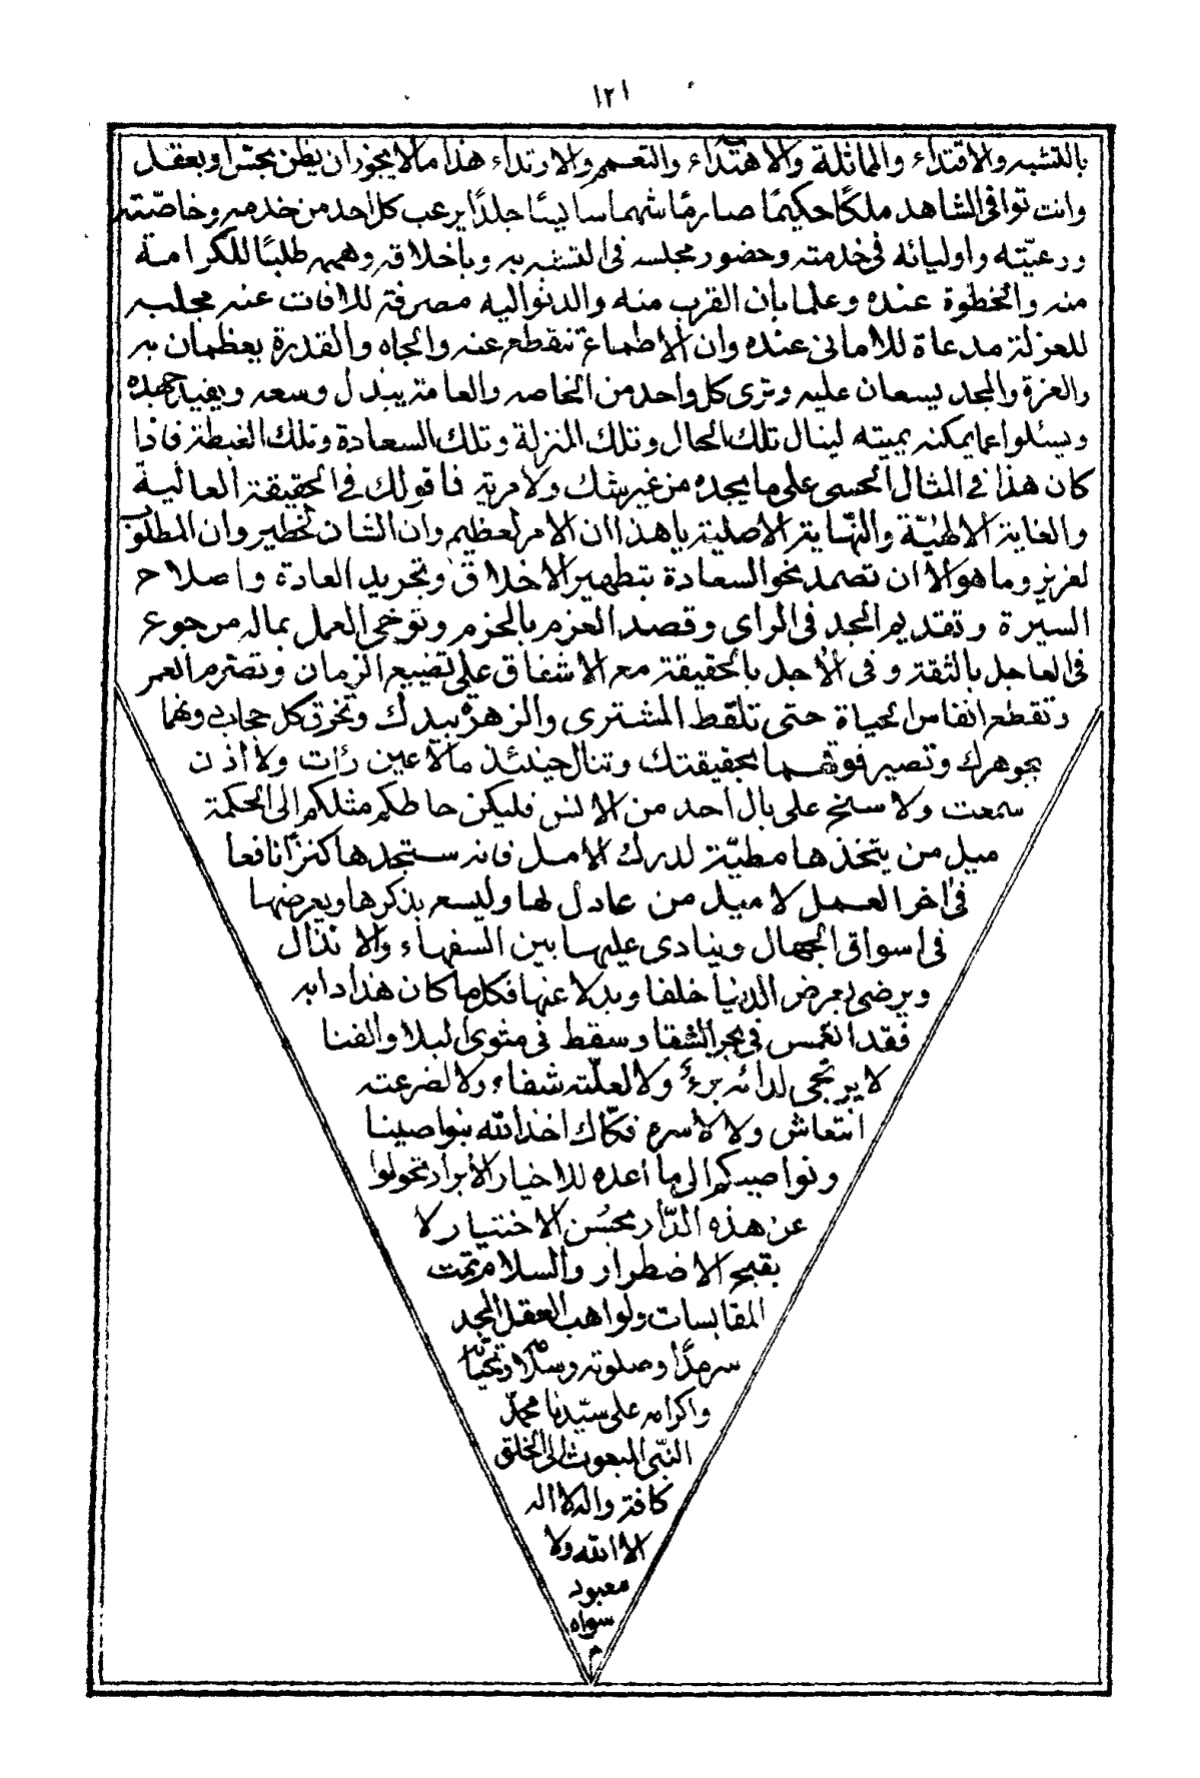 ١٢١
بالتشبه والاقتداء والمماثلة والاهتداء والتعمم والارتداء هذا مالا يجوز ان يظن بحس او بعقل
وانت توا فى الشاهد ملكًا حكيمًا صارمًا شهما سائسًا جلدًا يرعب كل احد من خدمه وخاصّته
ورعيّته واوليائه فى خدمته وحضور مجلسه فى التشبه به وباخلاقه وهممه طلبًا للكرامة
منه والخطوة عنده وعلما بان القرب منه والدنو اليه مصرفة للافات عنه مجلبه
للعزلة مدعاة للامانى عنده وان الاطماع تنقطع عنه والجاه والقدرة يعظمان به
والعزة والمجد يسعان عليه وترى كل واحد من الخاصه والعامة يبذل وسعه ويفيد جهده
ويسئلوا عما يمكنه بميته لينال تلك الحال وتلك المنزلة وتلك السعادة وتلك الغبطة فاذا
كان هذا فى المثال الحسى على ما يجده من غير شك ولا مرية فاقولك فى الحقيقة العالية
والغاية الالهيّة والنهاية الاصلية يا هذا ان الامر لعظيم وان الشان لخطير وان المطلوب
لعزيز وما هو الا ان تصمد نحو السعادة بتطهير الاخلاق وتجريد العادة واصلاح
السيرة وتقديم الجد فى الراى وقصد العزم بالحزم وتوخى العمل بماله مرجوع
فى العاجل بالثقة وفى الاجل بالحقيقة مع الاشفاق على تضييع الزمان وتصرم العمر
وتقطع انفاس الحياة حتى تلقط المشترى والزهرة بيدك وتخرق كل حجاب دونهما
بجوهرك وتصير فوقهما بحقيقتك وتنال حينئذ مالا عين رات ولا اذن
سمعت ولا سنح على بال احد من الانس فليكن حاطكم مثلكم الى الحكمة
ميل من يتخذها مطيّة لدرك الامل فانه ستجدها كنزًا نافعا
فى اخر العمل لا ميل من عادل لها وليسع بذكرها ويعرضها
فى اسواق الجهال وينادى عليها بين السفهاء والانذال
ويرضى بعرض الدنيا خلفا وبدلا عنها فكل ما كان هذا دابه
فقد انغمس فى بحر الشقا وسقط فى مثوى البلا والفنا
لا يرتجى لدائه برءٌ ولا لعلّته شفاء ولا لضرعته
انتعاش ولا لاسره فكّاك اخذ الله بنواصينا
ونواصيكم الى ما اعده للاخيار الأبرار تحولوا
عن هذه الدّار بحسن الاختيار لا
بقبح الاضطرار والسلام تمت
المقابسات ولواهب العقل المجد
سرمدًا وصلوته وسلامه وتحيّاته
واكرامه على سيّدنا محمّد
النبّى المبعوث الى الخلق
كافة واله لا اله
الا الله ولا
معبود
سواه
م